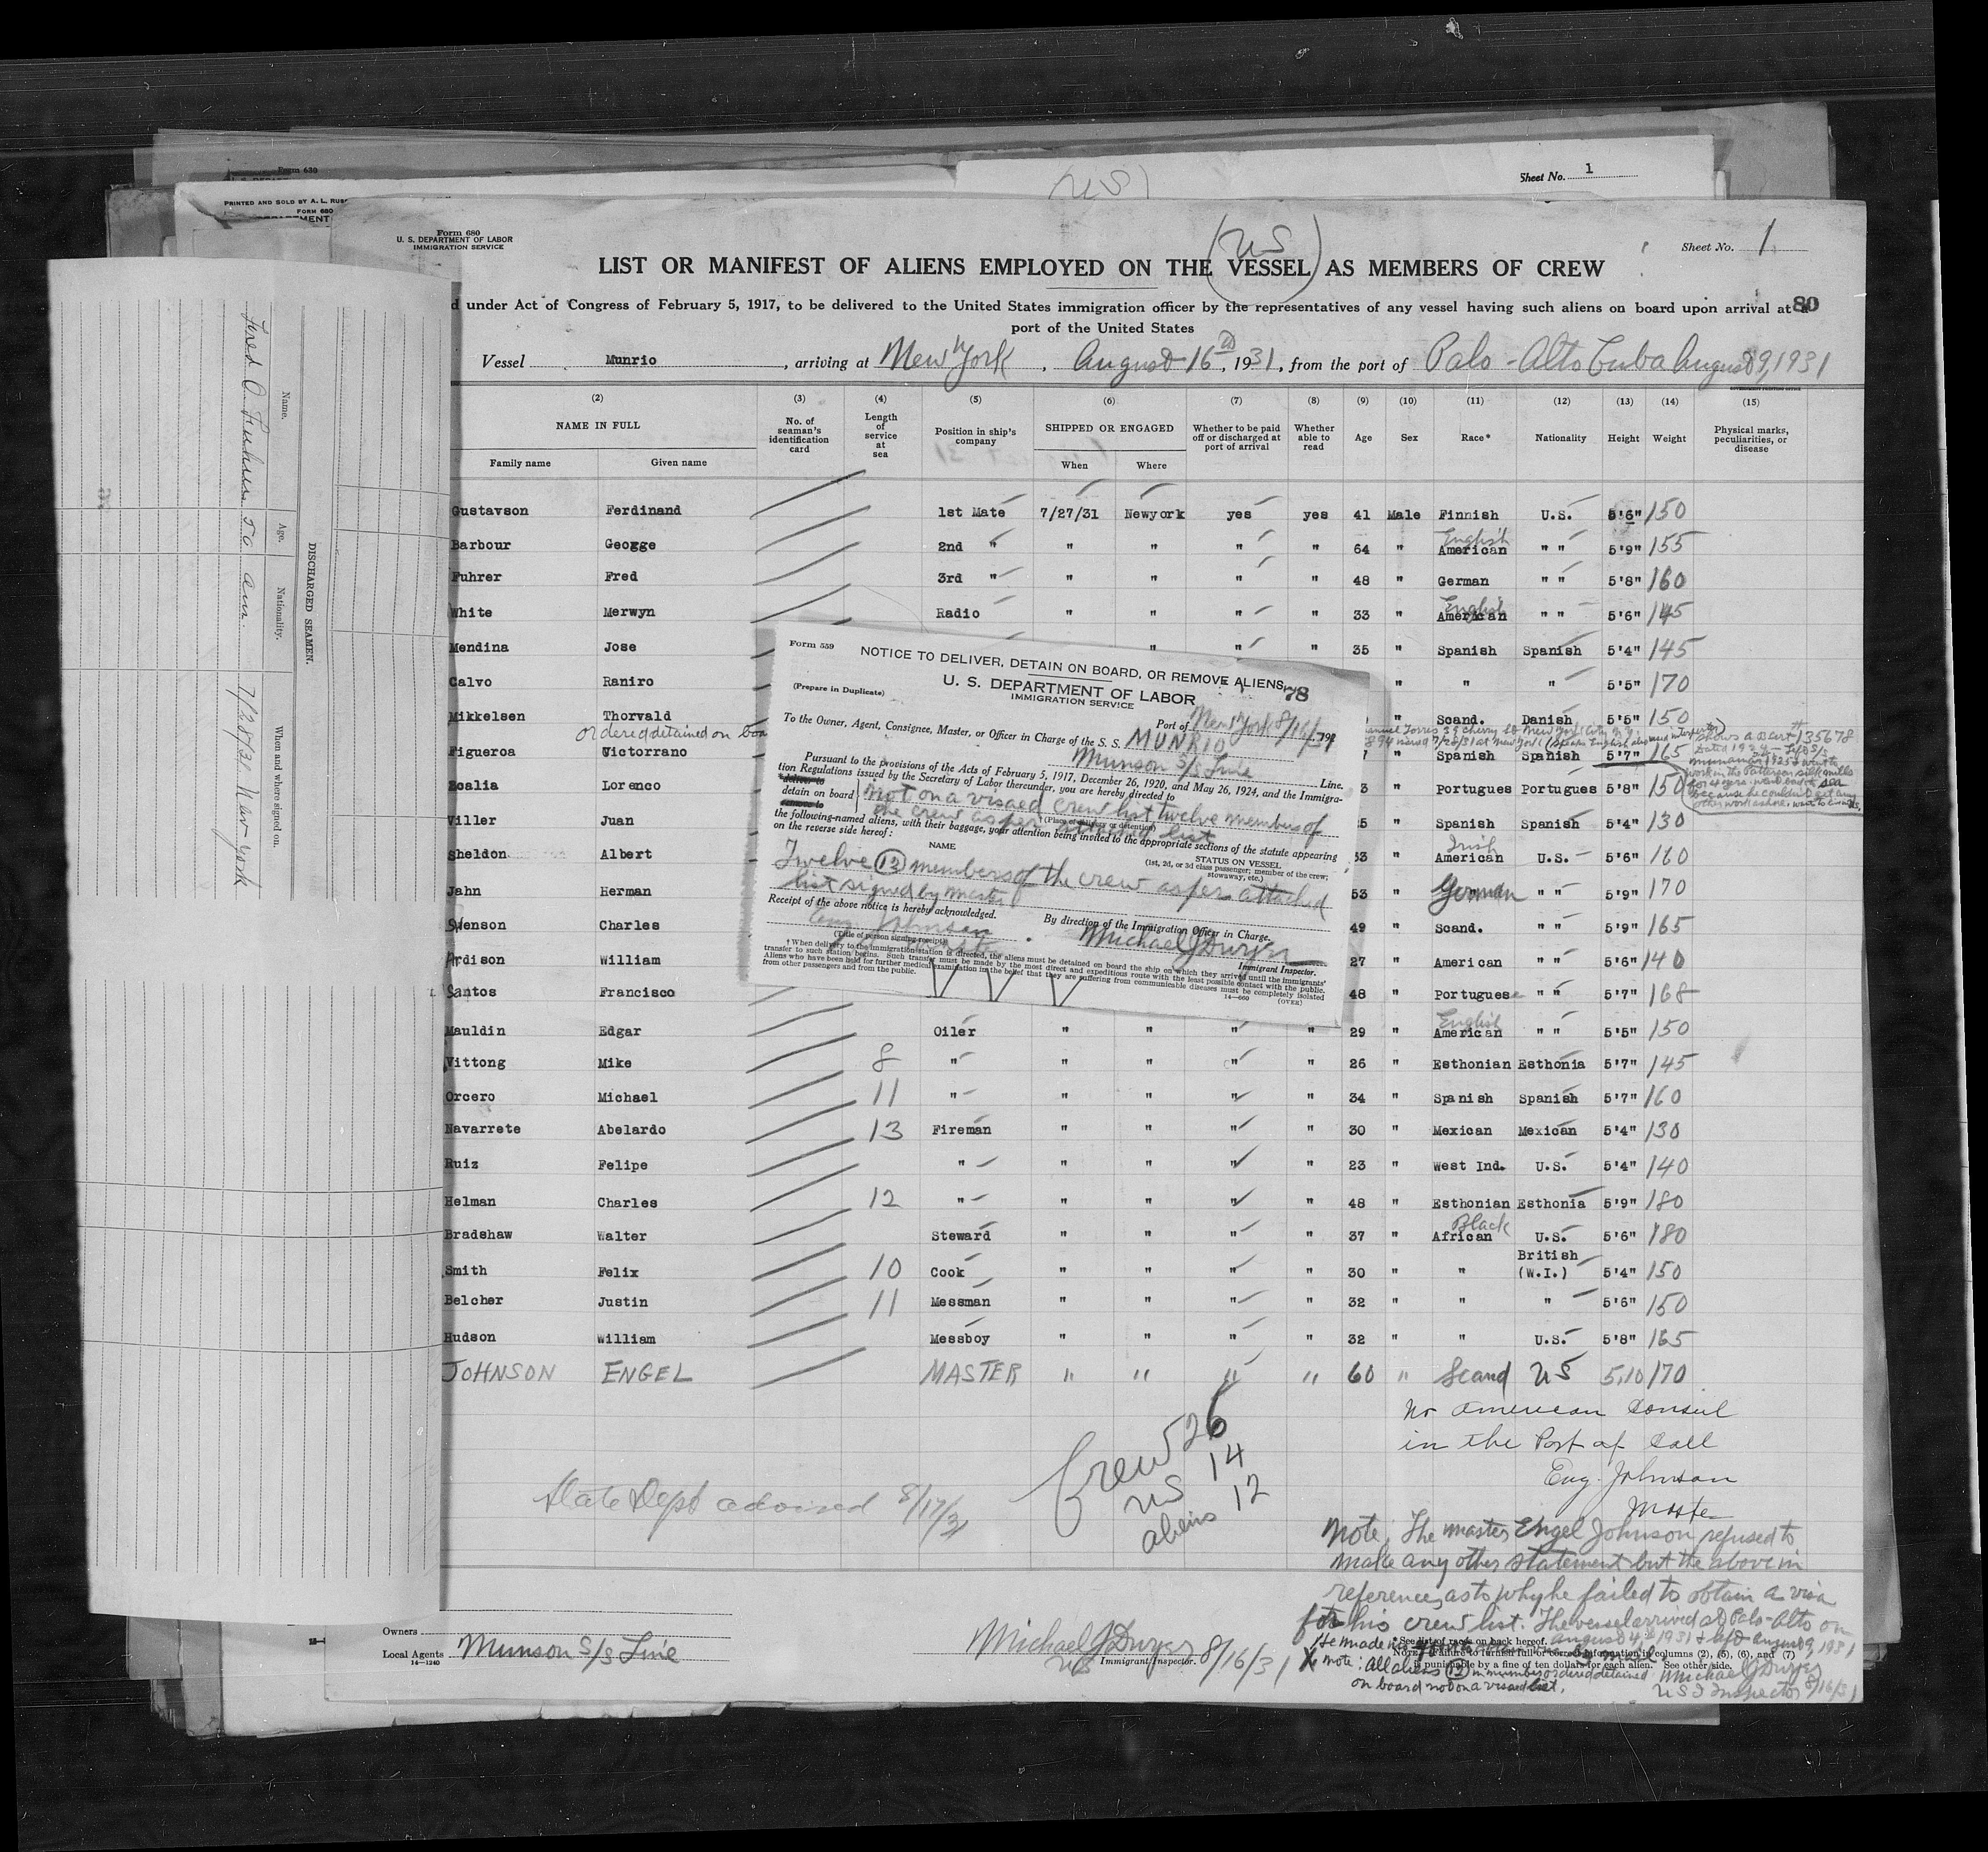 Form 630
PRINTED AND SOLD BY A. L.
FORM 680
Sheet No. 1
(US)
Form 680
U. S. DEPARTMENT OF LABOR
IMMIGRATION SERVICE
(US)
Sheet No. 1
LIST OR MANIFEST OF ALIENS EMPLOYED ON THE VESSEL AS MEMBERS OF CREW
under Act of Congress of February 5, 1917, to be delivered to the United States immigration officer by the representatives of any vessel having such aliens on board upon arrival at 80
port of the United States
Vessel Munrio, arriving at New York, August 16th, 1931, from the port of Palo-Alto Cuba August 9, 1931
(2) (3) (4) (5) (6) (7) (8) (9) (10) (11) (12) (13) (14) (15)
NAME IN FULL No. of seaman's identification card Length of service at sea Position in ship's company SHIPPED OR ENGAGED Whether to be paid off or discharged at port of arrival Whether able to read Age Sex Race* Nationality Height Weight Physical marks, peculiarities, or disease
Family name Given name When Where
Gustavson Ferdinand 1st Mate 7/27/31 Newyork yes yes 41 Male Finnish U.S. 5'6" 150
Barbour Geogge 2nd " " " " " 64 " American English " " 5'9" 155
Fuhrer Fred 3rd " " " " " 48 " German " " 5'8" 160
White Merwyn Radio " " " " 33 " American English " " 5'6" 145
Mendina Jose " " " 35 " Spanish Spanish 5'4" 145
Calvo Raniro " " " 5'5" 170
Mikkelsen Thorvald " Scand. Danish 5'5" 150
Ordered detained on
Figueroa Victorrano " Spanish Spanish 5'7" 165
Lorenco " Portugues Portugues 5'8" 150
Viller Juan " Spanish Spanish 5'4" 130
Sheldon Albert " American Irish U.S. 5'6" 160
Jahn Herman 53 " German " " 5'9" 170
Swenson Charles 49 " Scand. " " 5'9" 165
Ardison William 27 " American " " 5'6" 140
Santos Francisco 48 " Portuguese " " 5'7" 168
Mauldin Edgar Oiler " " " " 29 " American English " " 5'5" 150
Vittong Mike 8 " " " " " 26 " Esthonian Esthonia 5'7" 145
Orcero Michael 11 " " " " " 34 " Spanish Spanish 5'7" 160
Navarrete Abelardo 13 Fireman " " " " 30 " Mexican Mexican 5'4" 130
Ruiz Felipe " " " " " 23 " West Ind. U.S. 5'4" 140
Helman Charles 12 " " " " " 48 " Esthonian Esthonia 5'9" 180
Bradshaw Walter Steward " " " " 37 " African Black U.S. 5'6" 180
Smith Felix 10 Cook " " " " 30 " " British (W.I.) 5'4" 150
Belcher Justin 11 Messman " " " " 32 " " " 5'6" 150
Hudson William Messboy " " " " 32 " " U.S. 5'8" 165
JOHNSON ENGEL MASTER " " " " 60 " Scand US 5,10 170
shows a
Form 559
NOTICE TO DELIVER, DETAIN ON BOARD, OR REMOVE ALIENS
78
U. S. DEPARTMENT OF LABOR
IMMIGRATION SERVICE
(Prepare in Duplicate)
Port of New York 8/16/31
To the Owner, Agent, Consignee, Master, or Officer in Charge of the S. S. MUNRIO
Munson S/S Line Line.
Pursuant to the provisions of the Acts of February 5, 1917, December 26, 1920, and May 26, 1924, and the Immigra-
tion Regulations issued by the Secretary of Labor thereunder, you are hereby directed to
deliver to
detain on board
remove to
not on a visaed crew list twelve members of
the crew as per attached list
(Place of delivery or detention)
the following-named aliens, with their baggage, your attention being invited to the appropriate sections of the statute appearing
on the reverse side hereof:
NAME
STATUS ON VESSEL
(1st, 2d, or 3d class passenger; member of the crew; stowaway, etc.)
Twelve (12) members of the crew as per attached
list signed by master
Receipt of the above notice is hereby acknowledged.
By direction of the Immigration Officer in Charge.
Eng. Johnson
Michael J Dwyer
(Title of person signing receipt)
Immigrant Inspector.
† When delivery to the immigration station is directed, the aliens must be detained on board the ship on which they arrived until the immigrants'
transfer to such station begins. Such transfer must be made by the most direct and expeditious route with the least possible contact with the public.
Aliens who have been held for further medical examination in the belief that they are suffering from communicable diseases must be completely isolated
from other passengers and from the public.
14—660 (OVER)
DISCHARGED SEAMEN.
Name. Age. Nationality. When and where signed on.
Fred 7/28/31 New York
No American Consul
in the Port of Call
Eng. Johnson
Master
Crew 26
US 14
aliens 12
State Dept advised 8/17/31
Note: The master Engel Johnson refused to
make any other statement but the above in
reference as to why he failed to obtain a visa
for his crew list. The vessel arrived at Palo-Alto on
August 4th 1931 & left August 9, 1931
Owners
Local Agents Munson S/S Line
14—1240
Michael J Dwyer 8/16/31
US Immigrant Inspector.
* See list of races on back hereof.
NOTE.—Failure to furnish full or correct information in columns (2), (5), (6), and (7)
is punishable by a fine of ten dollars for each alien. See other side.
X note: All aliens (12) in number ordered detained
on board not on a visaed list.
Michael J Dwyer
US I Inspector 8/16/31